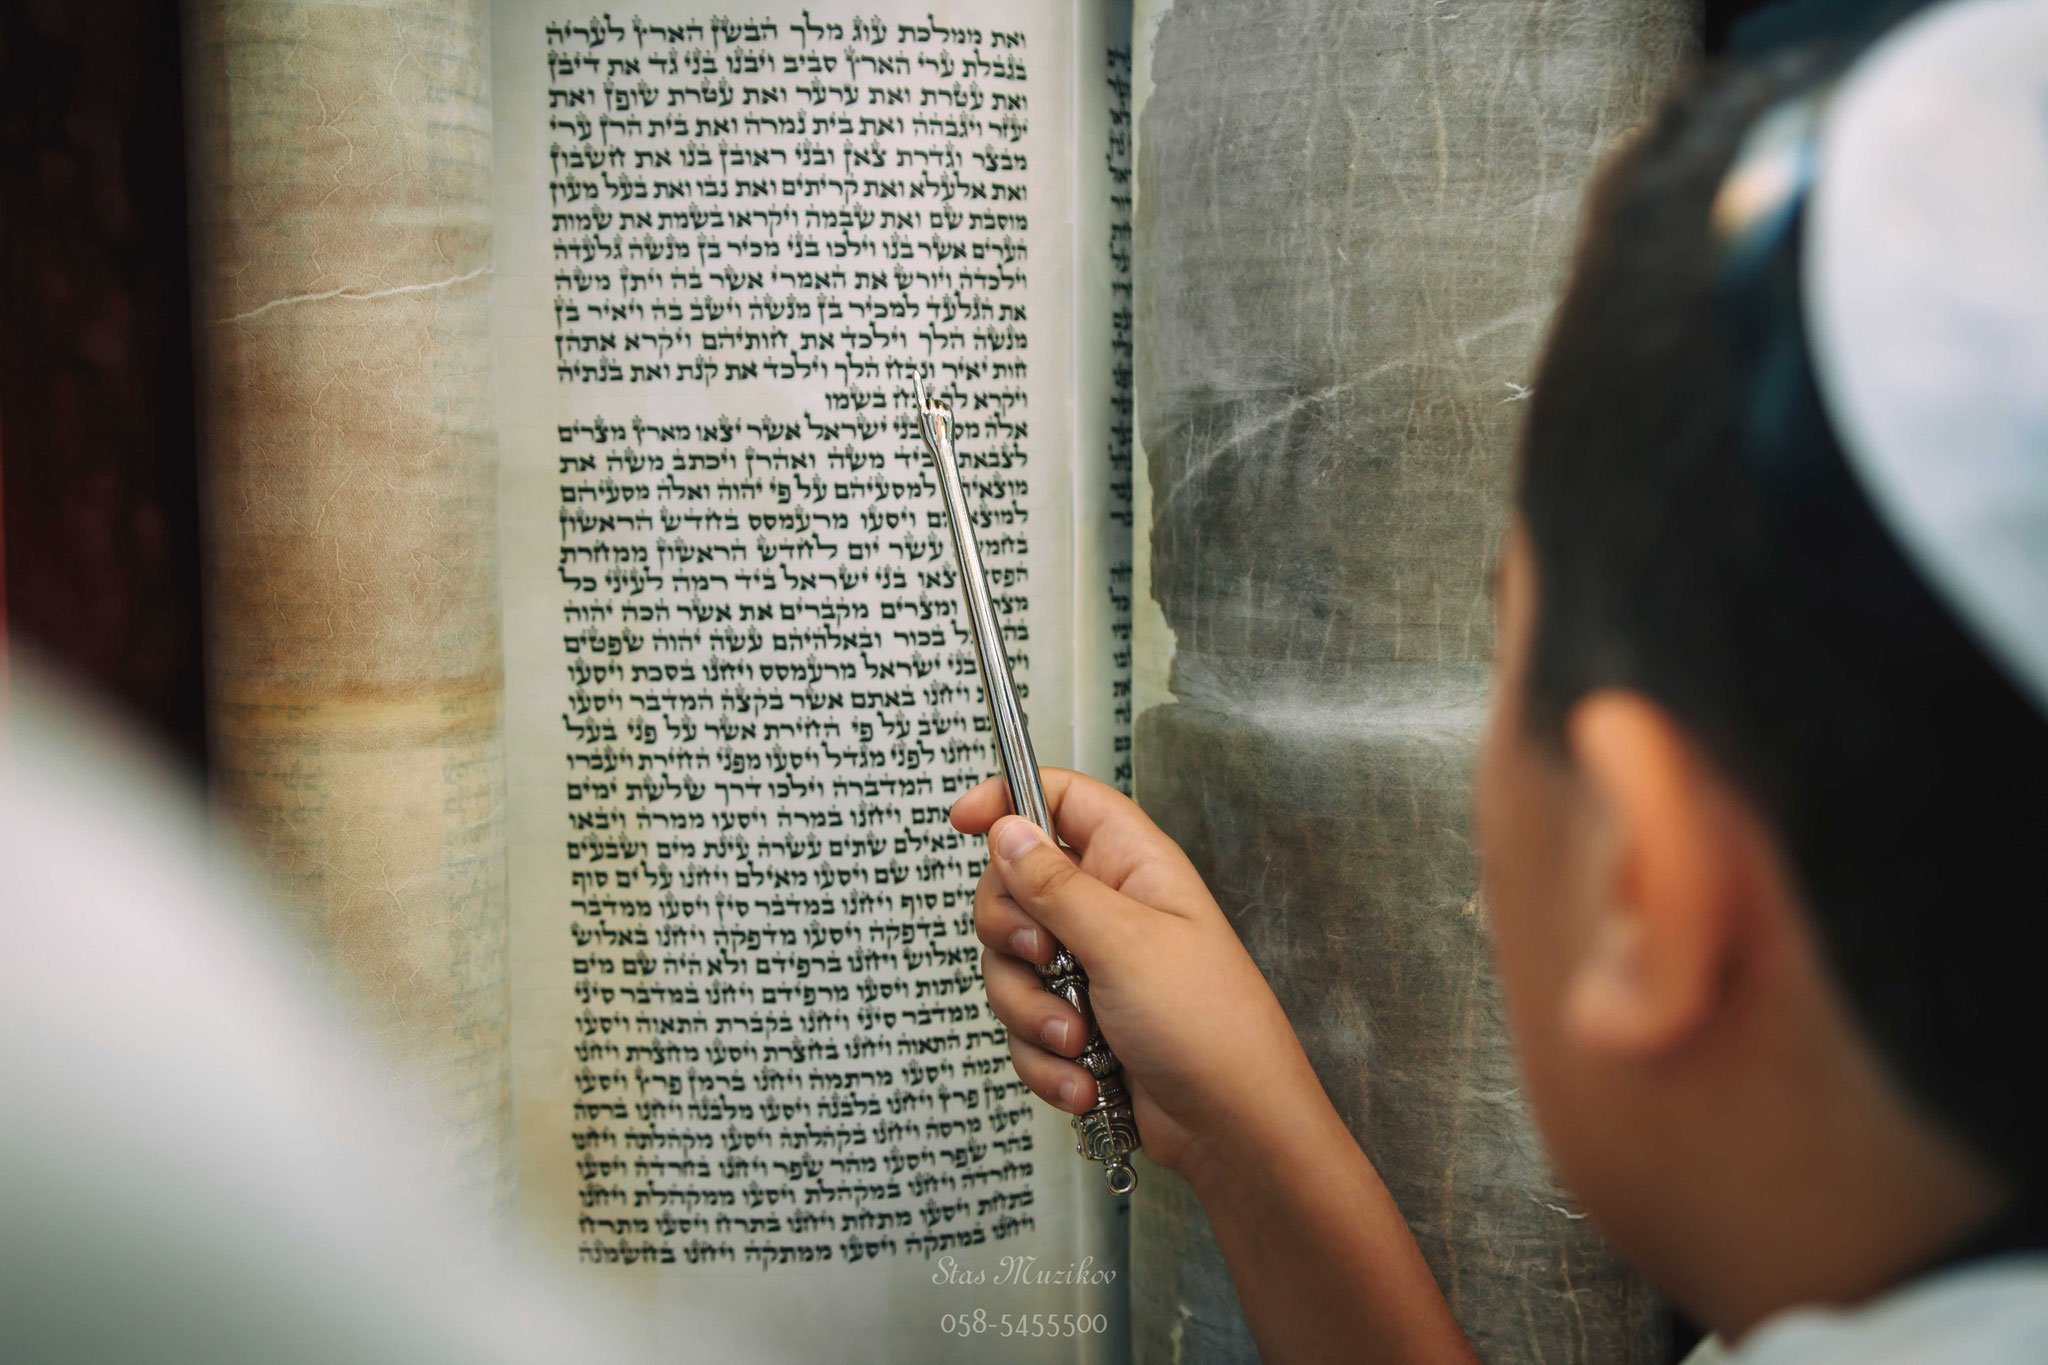 ואת ממלכת עוג מלך הבשן הארץ לעריה
בגבלת ערי הארץ סביב ויבנו בני גד את דיבן
ואת עטרת ואת ערער ואת עטרת שופן ואת
יעזר ויגבהה ואת בית נמרה ואת בית הרן ערי
מבצר וגדרת צאן ובני ראובן בנו את חשבון
ואת אלעלא ואת קריתים ואת נבו ואת בעל מעון
מוסבת שם ואת שבמה ויקראו בשמת את שמות
הערים אשר בנו וילכו בני מכיר בן מנשה גלעדה
וילכדה ויורש את האמרי אשר בה ויתן משה
את הגלעד למכיר בן מנשה וישב בה ויאיר בן
מנשה הלך וילכד את חותיהם ויקרא אתהן
חות יאיר ונבח הלך וילכד את קנת ואת בנתיה
ויקרא לה נבח בשמו
אלה בני ישראל אשר יצאו מארץ מצרים
לצבאתם ביד משה ואהרן ויכתב משה את
למסעיהם על פי יהוה ואלה מסעיהם
ויסעו מרעמסס בחדש הראשון
עשר יום לחדש הראשון ממחרת
יצאו בני ישראל ביד רמה לעיני כל
ומצרים מקברים את אשר הכה יהוה
בכור ובאלהיהם עשה יהוה שפטים
בני ישראל מרעמסס ויחנו בסכת ויסעו
ויחנו באתם אשר בקצה המדבר ויסעו
וישב על פי החירת אשר על פני בעל
ויחנו לפני מגדל ויסעו מפני החירת ויעברו
הים המדברה וילכו דרך שלשת ימים
אתם ויחנו במרה ויסעו ממרה ויבאו
ובאילם שתים עשרה עינת מים ושבעים
ויחנו שם ויסעו מאילם ויחנו על ים סוף
מים סוף ויחנו במדבר סין ויסעו ממדבר
ויחנו בדפקה ויסעו מדפקה ויחנו באלוש
מאלוש ויחנו ברפידם ולא היה שם מים
לשתות ויסעו מרפידם ויחנו במדבר סיני
ממדבר סיני ויחנו בקברת התאוה ויסעו
התאוה ויחנו בחצרת ויסעו מחצרת ויחנו
ויסעו מרתמה ויחנו ברמן פרץ ויסעו
מרמן פרץ ויחנו בלבנה ויסעו מלבנה ויחנו ברסה
ויסעו מרסה ויחנו בקהלתה ויסעו מקהלתה ויחנו
בהר שפר ויסעו מהר שפר ויחנו בחרדה ויסעו
מחרדה ויחנו במקהלת ויסעו ממקהלת ויחנו
בתחת ויסעו מתחת ויחנו בתרח ויסעו מתרח
ויחנו במתקה ויסעו ממתקה ויחנו בחשמנה
Stas Muzikov
058-5455500